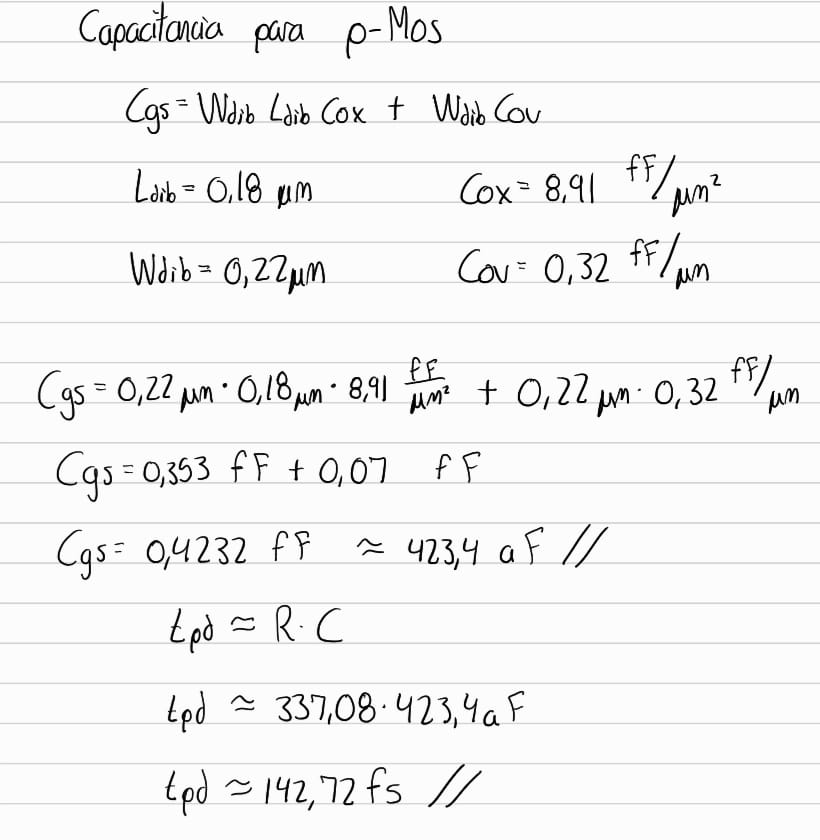 Capacitancia para p-Mos
Cgs = Wdib Ldib Cox + Wdib Cov
Ldib = 0,18 μm Cox = 8,91 fF/μm²
Wdib = 0,22 μm Cov = 0,32 fF/μm
Cgs = 0,22 μm · 0,18 μm · 8,91 fF/μm² + 0,22 μm · 0,32 fF/μm
Cgs = 0,353 fF + 0,07 fF
Cgs = 0,4232 fF ≈ 423,4 aF //
tpd ≈ R · C
tpd ≈ 337,08 · 423,4 aF
tpd ≈ 142,72 fs //